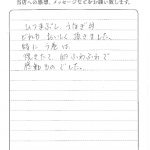 当店への感想、メッセージなどをお願い致します。
ひつまぶし、うなぎ丼
どれも おいしく 頂きました。
特に う巻は、
焼きたて、的ふわふわで
感動ものでした。